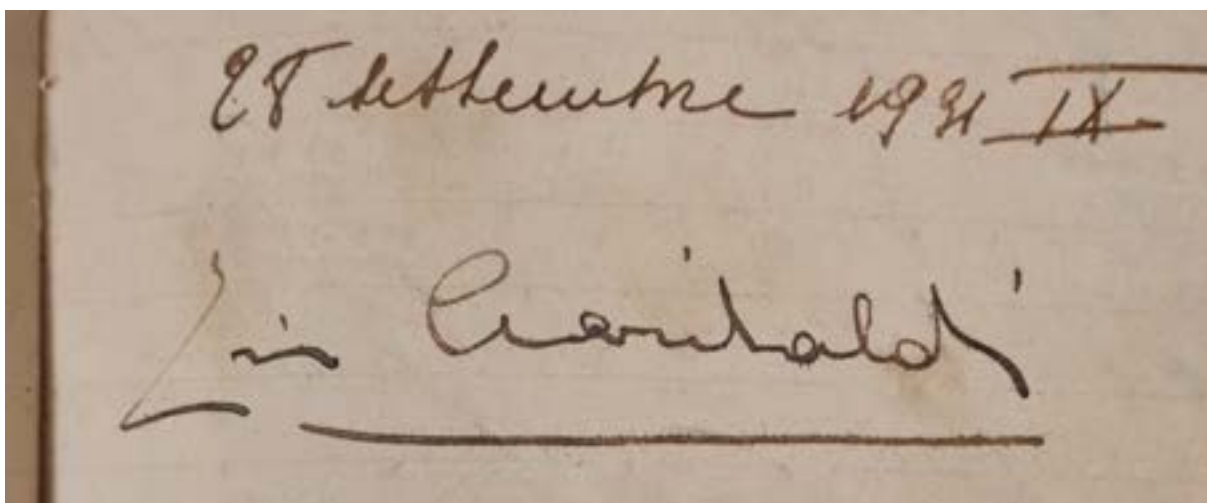 28 settembre 1931 IX
Ezio Garibaldi